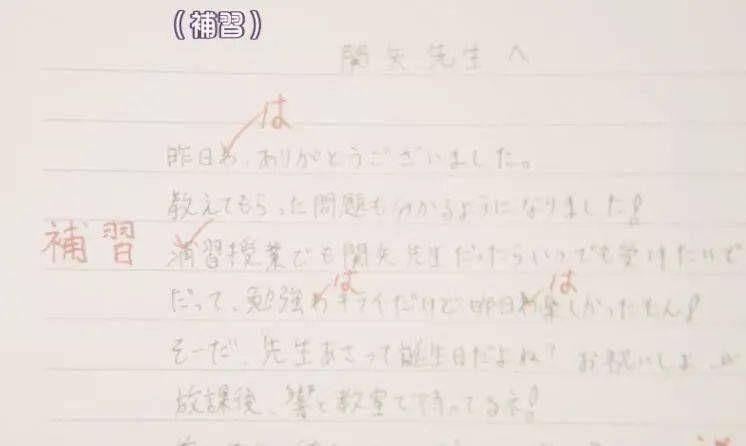 (補習)
関矢先生へ
は
昨日わ、ありがとうございました。
教えてもらった問題も分かるようになりました!
補習
習授業でも関矢先生だったらいつでも受けたいで
は は
だって、勉強わキライだけど昨日わ楽しかったもん!
そーだ、先生あさって誕生日だよね? お祝いしよ
放課後、響と教室で待ってるネ!